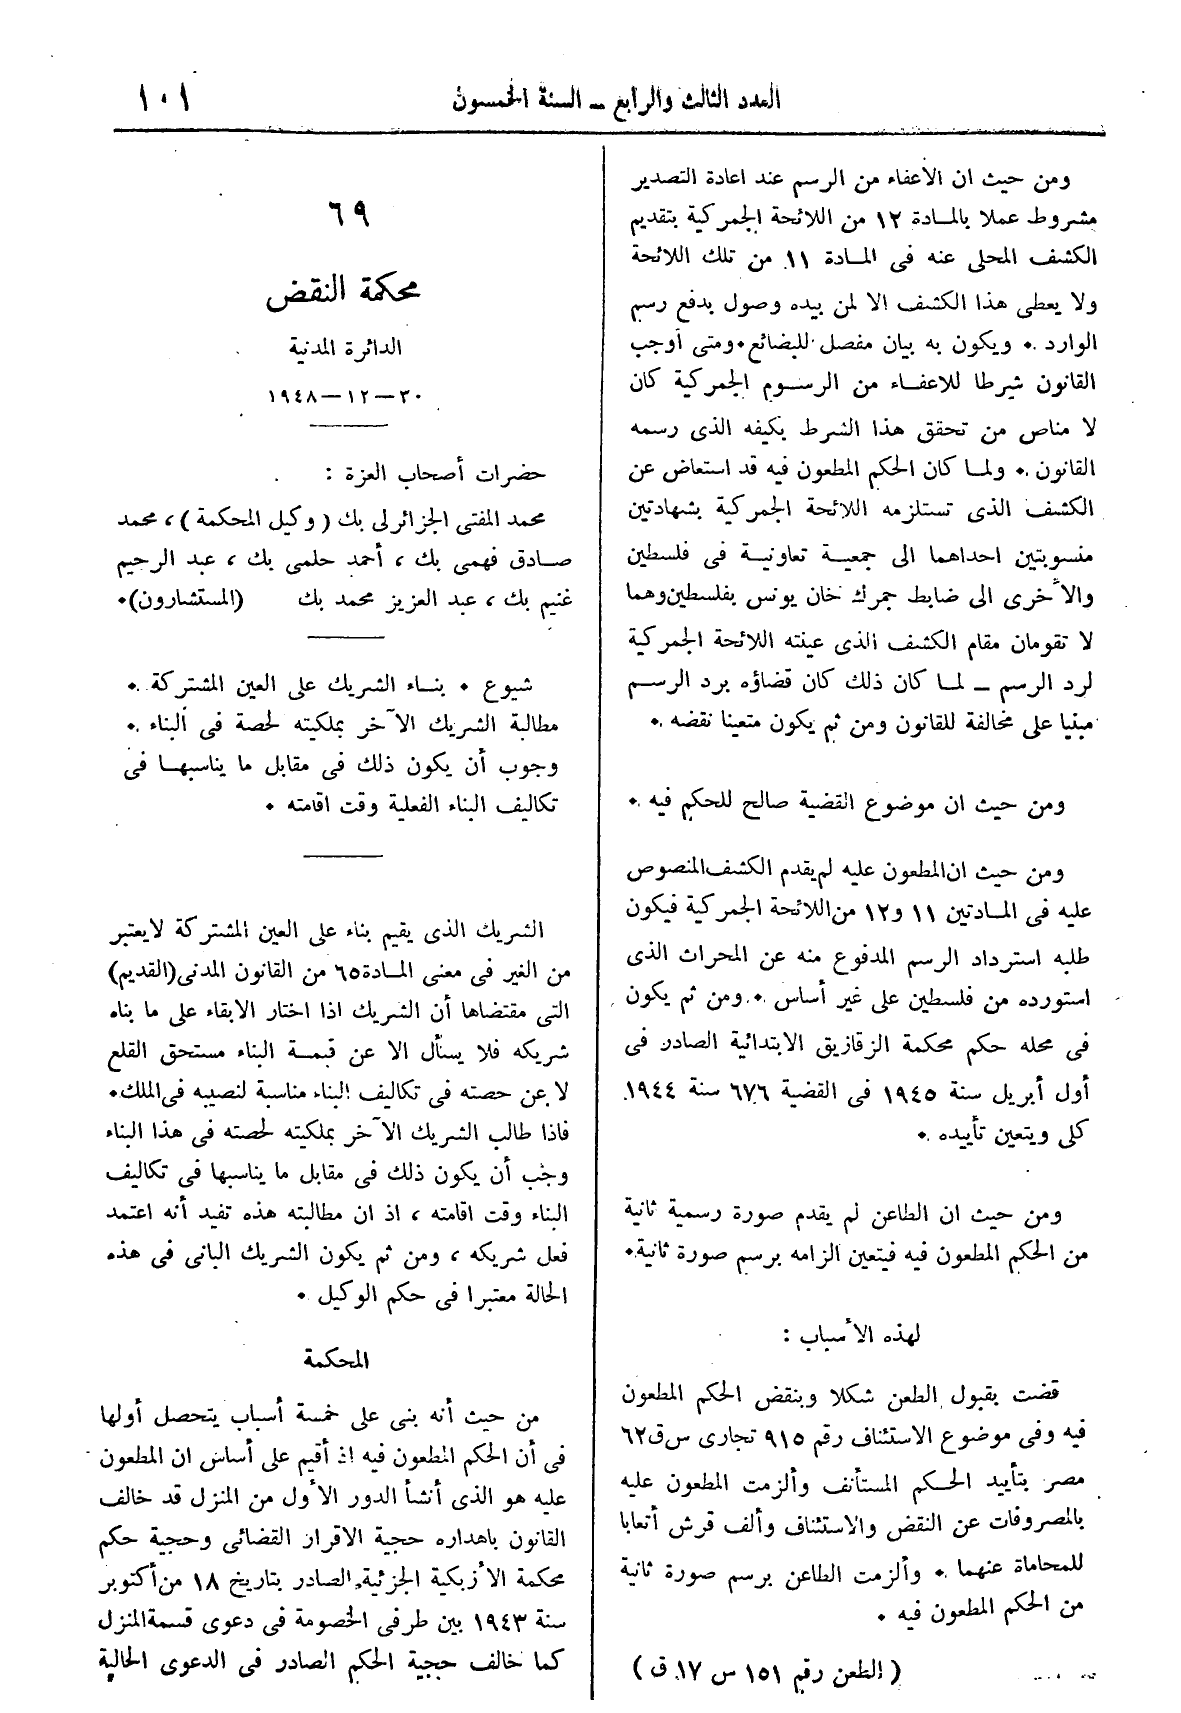 العدد الثالث والرابع – السنة الخمسون
١٠١
ومن حيث ان الاعفاء من الرسم عند اعادة التصدير
مشروط عملا بالمــادة ١٢ من اللائحة الجمركية بتقديم
الكشف المحلى عنه فى المــادة ١١ من تلك اللائحة
ولا يعطى هذا الكشف الا لمن بيده وصول بدفع رسم
الوارد ٠ ويكون به بيان مفصل للبضائع٠ومتى أوجب
القانون شرطا للاعفــاء من الرســوم الجمركية كان
لا مناص من تحقق هذا الشرط بكيفه الذى رسمه
القانون ٠ ولمــا كان الحكم المطعون فيه قد استعاض عن
الكشف الذى تستلزمه اللائحة الجمركية بشهادتين
منسوبتين احداهما الى جمعيــة تعاونيــة فى فلسطين
والأخرى الى ضابط جمرك خان يونس بفلسطين وهما
لا تقومان مقام الكشف الذى عينته اللائحة الجمركية
لرد الرسم – لمــا كان ذلك كان قضاؤه برد الرســم
مبنيا على مخالفة للقانون ومن ثم يكون متعينا نقضه ٠
ومن حيث ان موضوع القضية صالح للحكم فيه ٠
ومن حيث ان المطعون عليه لم يقدم الكشف المنصوص
عليه فى المــادتين ١١ و١٢ من اللائحة الجمركية فيكون
طلبه استرداد الرسم المدفوع منه عن المحراث الذى
استورده من فلسطين على غير أساس ٠ ومن ثم يكون
فى محله حكم محكمة الزقازيق الابتدائية الصادر فى
أول أبريل سنة ١٩٤٥ فى القضية ٦٧٦ سنة ١٩٤٤
كلى ويتعين تأييده ٠
ومن حيث ان الطاعن لم يقدم صورة رسمية ثانية
من الحكم المطعون فيه فيتعين الزامه برسم صورة ثانية٠
لهذه الأسباب :
قضت بقبول الطعن شكلا وبنقض الحكم المطعون
فيه وفى موضوع الاستئناف رقم ٩١٥ تجارى س ق٦٢
مصر بتأييد الحكــم المستأنف وألزمت المطعون عليه
بالمصروفات عن النقض والاستئناف وألف قرش أتعابا
للمحاماة عنهما ٠ وألزمت الطاعن برسم صورة ثانية
من الحكم المطعون فيه ٠
( الطعن رقم ١٥١ س ١٧ ق )
٦٩
محكمة النقض
الدائرة المدنية
٣٠–١٢–١٩٤٨
حضرات أصحاب العزة :
محمد المفتى الجزائرلى بك ( وكيل المحكمة ) ، محمد
صــادق فهمى بك ، أحمد حلمى بك ، عبد الرحيم
غنيم بك ، عبد العزيز محمد بك (المستشارون)٠
شيوع ٠ بنــاء الشريك على العين المشتركة ٠
مطالبة الشريك الآخر بملكيته لحصة فى البناء ٠
وجوب أن يكون ذلك فى مقابل ما يناسبهــا فى
تكاليف البناء الفعلية وقت اقامته ٠
الشريك الذى يقيم بناء على العين المشتركة لايعتبر
من الغير فى معنى المــادة٦٥ من القانون المدنى(القديم)
التى مقتضاها أن الشريك اذا اختار الابقاء على ما بناه
شريكه فلا يسأل الا عن قيمــة البناء مستحق القلع
لا عن حصته فى تكاليف البناء مناسبة لنصيبه فى الملك٠
فاذا طالب الشريك الآخر بملكيته لحصته فى هذا البناء
وجب أن يكون ذلك فى مقابل ما يناسبها فى تكاليف
البناء وقت اقامته ، اذ ان مطالبته هذه تفيد أنه اعتمد
فعل شريكه ، ومن ثم يكون الشريك البانى فى هذه
الحالة معتبرا فى حكم الوكيل ٠
المحكمة
من حيث أنه بنى على خمسة أسباب يتحصل أولها
فى أن الحكم المطعون فيه اذ أقيم على أساس ان المطعون
عليه هو الذى أنشأ الدور الأول من المنزل قد خالف
القانون باهداره حجية الاقرار القضائى وحجية حكم
محكمة الأزبكية الجزئية الصادر بتاريخ ١٨ من أكتوبر
سنة ١٩٤٣ بين طرفى الخصومة فى دعوى قسمة المنزل
كما خالف حجية الحكم الصادر فى الدعوى الحالية